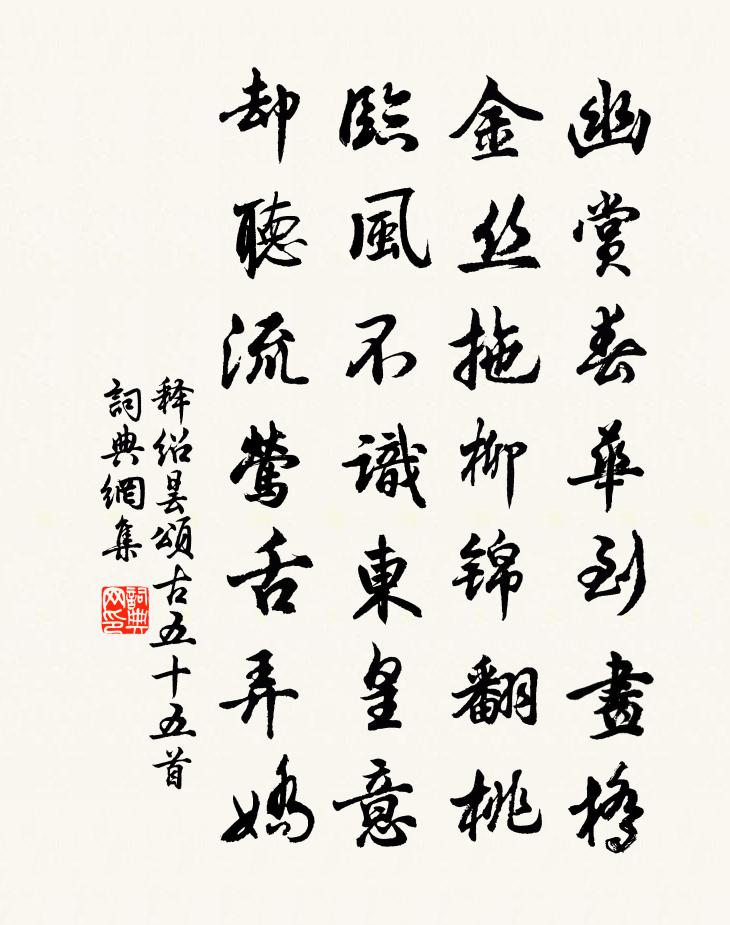 幽赏春華到畫橋
金丝拖柳锦翻桃
臨風不識東皇意
却聽流莺舌弄嬌
释绍昙頌古五十五首
詞典網集
詞典网印